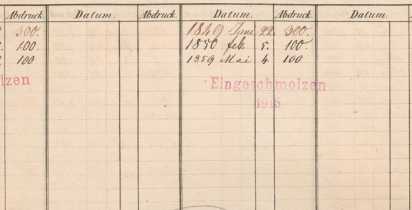 Abdruck. Datum. Abdruck. Datum. Abdruck. Datum.
300. 1849 Juni 22. 300.
100 1850 feb. 5. 100
100 1859 Mai 4. 100
lzen Eingeschmolzen
1915